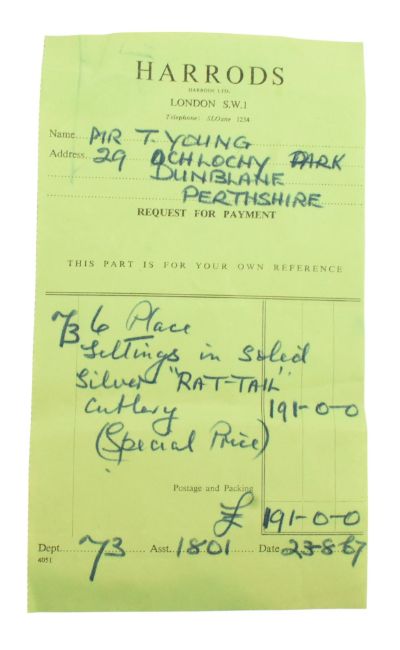 HARRODS
HARRODS LTD.
LONDON S.W.1
Telephone: SLOane 1234
Name MR T. YOUNG
Address 29 OCHLOCHY PARK
DUNBLANE
PERTHSHIRE
REQUEST FOR PAYMENT
THIS PART IS FOR YOUR OWN REFERENCE
73 6 Place
Settings in Solid
Silver "RAT-TAIL"
Cutlery 191-0-0
(Special Price)
Postage and Packing
£ 191-0-0
Dept. 73 Asst. 1801 Date 23-8-67
4051